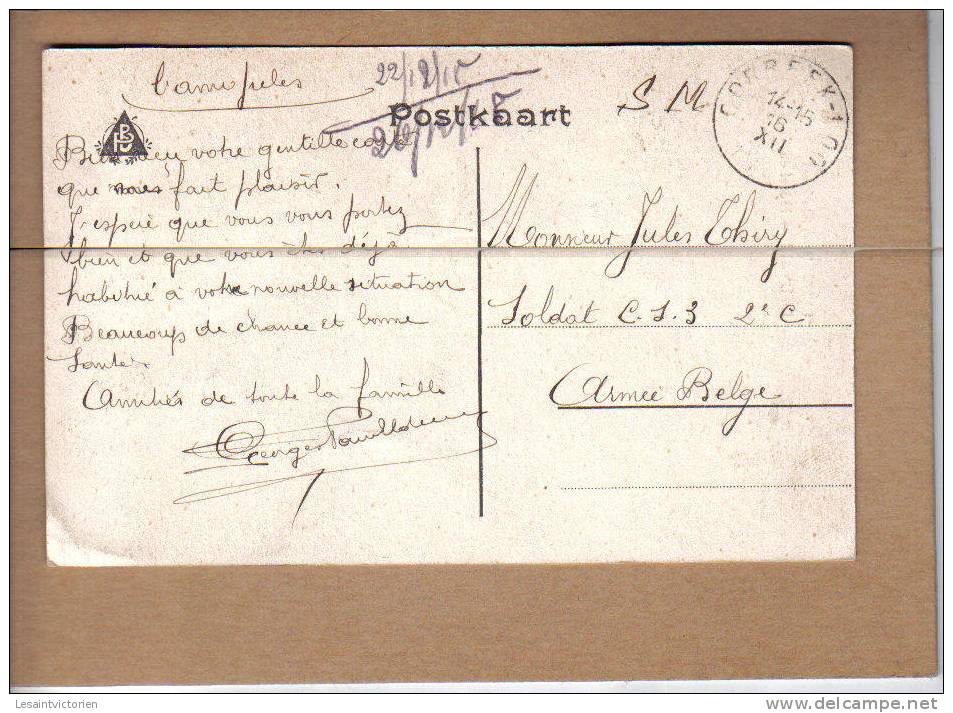 L'ami Jules
22/12/15
Postkaart
S M
14-15
16
XII
Bien reçu votre gentille carte
que nous fait plaisir.
J'espère que vous vous portez
bien et que vous êtes déjà
habitué à votre nouvelle situation
Beaucoup de chance et bonne
Santé.
Amitiés de toute la famille
Georges
Monsieur Jules Thiry
Soldat C.I.3 2e C
Armée Belge
Lesaintvictorien
delcampe.net